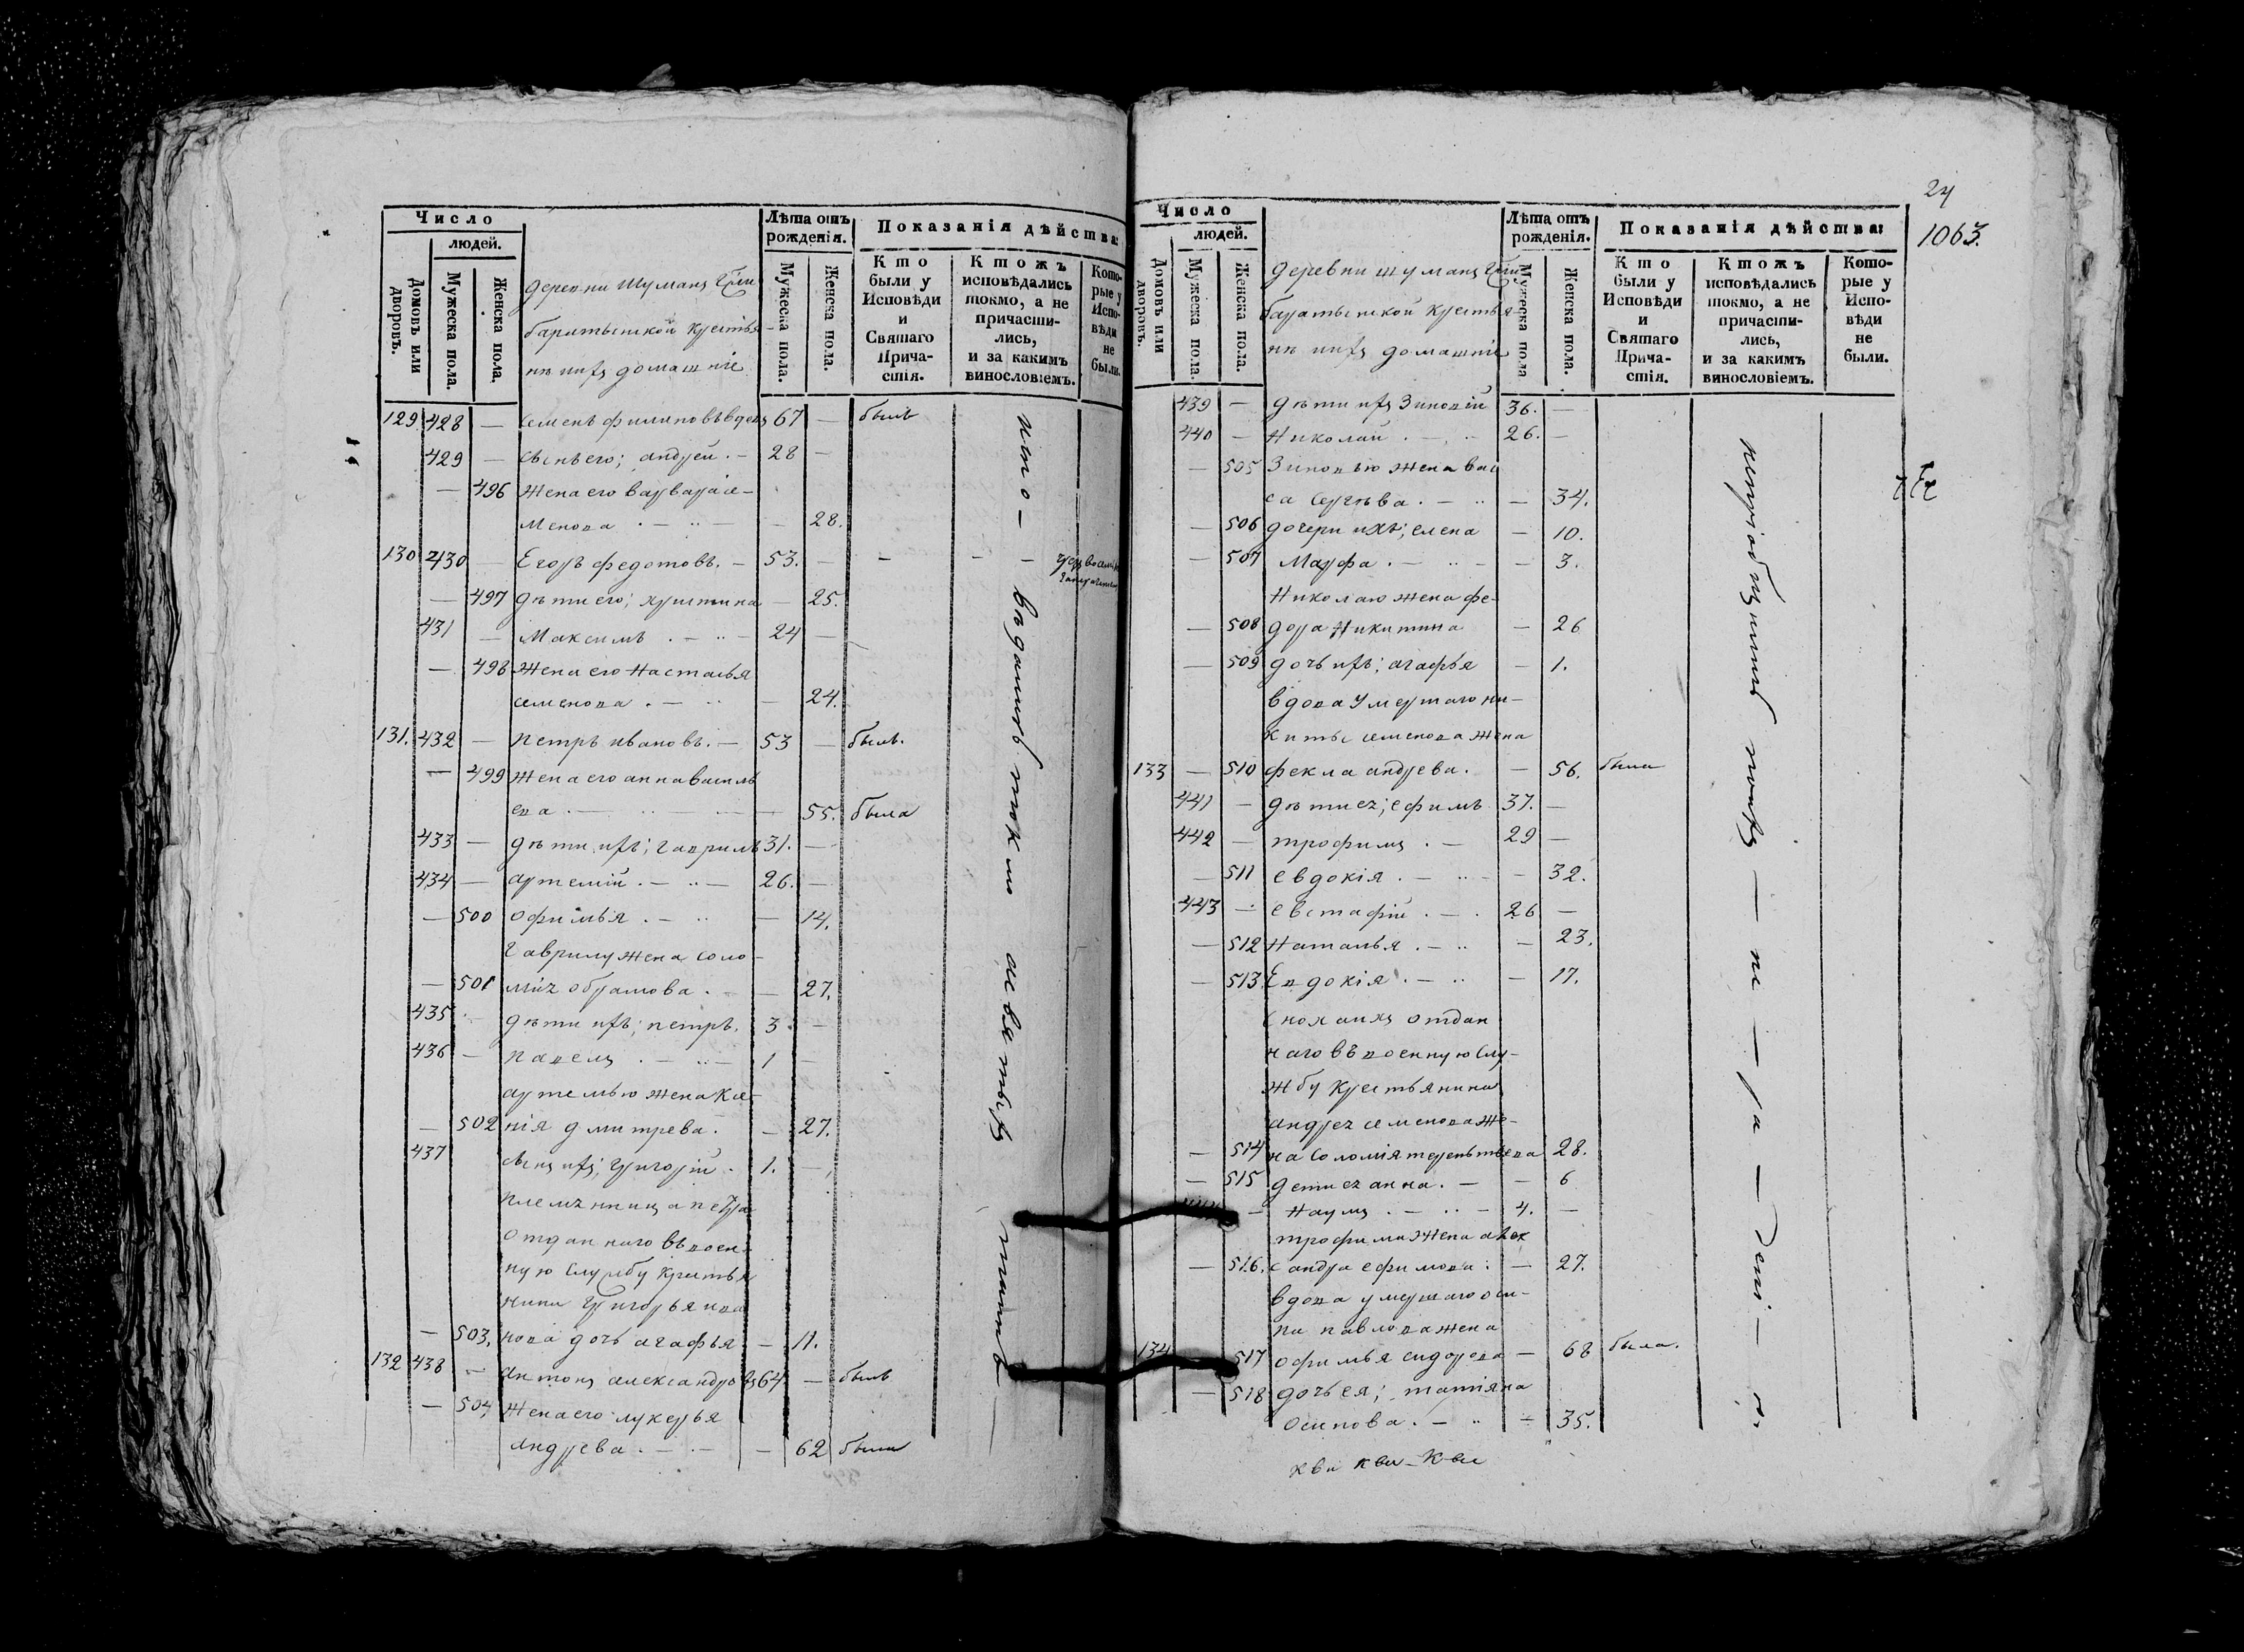 Число
людей.
Домовъ или дворовъ.
Мужеска пола.
Женска пола.
деревни Шуманц
баратынской крестья
не ихъ домашніе
Лѣта отъ рожденія.
Мужеска пола.
Женска пола.
Показанія дѣйства:
Кто были у Исповѣди и Святаго Прича- стія.
Ктожъ исповѣдались токмо, а не причасти- лись, и за какимъ винословіемъ.
Кото- рые у Испо- вѣди не были.
129 428 — семенъ филиповъ вдовъ 67 — былъ
429 — сынъ его; андрей . — 28 —
— 496 жена его варвара се-
менова . — .. — — 28.
130 430 — Егоръ федотовъ. — 53. — - - -
— 497 дѣти его; христина — 25.
431 — Максимъ . — .. — 24 —
— 498 жена его Насталья
семенова . — .. — 24.
131. 432 — петръ ивановъ. — 53 — былъ.
— 499 жена его анна василь
ева . — .. — — 55. была
433 — дѣти ихъ; гаврилъ 31. —
434 — артемій . — .. — 26. —
— 500 офимья . — .. — 14.
Гаврилу жена соло-
— 501 мія обрамова . — — 27.
435 — дѣти ихъ; петръ. 3. —
436 — павелъ . — .. — 1 —
артемью жена Ксе-
— 502 нія дмитрева. — 27.
437 сынъ ихъ; григорій . 1. —
племянница петра
отданнаго въ воен-
ную службу крестья
нина григорья ива
— 503. нова дочь агафья — 11.
132 438 — антонъ александровъ 64 — былъ
— 504 жена его лукерья
андрева . — . — — 62 была
кто — въ
24
1063.
Число
людей.
Домовъ или дворовъ.
Мужеска пола.
Женска пола.
деревни шуманц
баратынской крестья
не ихъ домашніе
Лѣта отъ рожденія.
Мужеска пола
Женска пола.
Показанія дѣйства:
Кто были у Исповѣди и Святаго Прича- стія.
Ктожъ исповѣдались токмо, а не причасти- лись, и за какимъ винословіемъ.
Кото- рые у Испо- вѣди не были.
439 — дѣти ихъ Зиновій 36. —
440 — Николай . — .. 26. —
— 505 Зиновью жена вас
са сергѣва . — .. — 34.
— 506 дочери ихъ; елена — 10.
— 507 Марфа . — .. — — 3.
Николаю жена фе-
— 508 дора Никитина — 26
— 509 дочь ихъ; агафья — 1.
вдова умершаго ни-
киты семенова жена
133 — 510 фекла андрева. — 56. была
441 — дѣти ея; ефимъ 37. —
442 — трофимъ . — 29 —
— 511 евдокія . — .. — 32.
443 — евстафій . — . 26 —
— 512 Наталья . — .. — 23.
— 513 Евдокія . — .. — 17.
Сноха ихъ отдан
наго въ военную слу-
жбу крестьянина
андрея семенова же-
— 514 на Соломія терентьева 28.
— 515 дети ея анна. — — 6
— Наумъ . — .. — 4. —
трофима жена алек
— 516. сандра ефимова . — 27.
вдова умершаго оси-
па павлова жена
134 517 офимья сидорова — 68 была.
— 518 дочь ея; татіяна
осипова . — .. — 35.